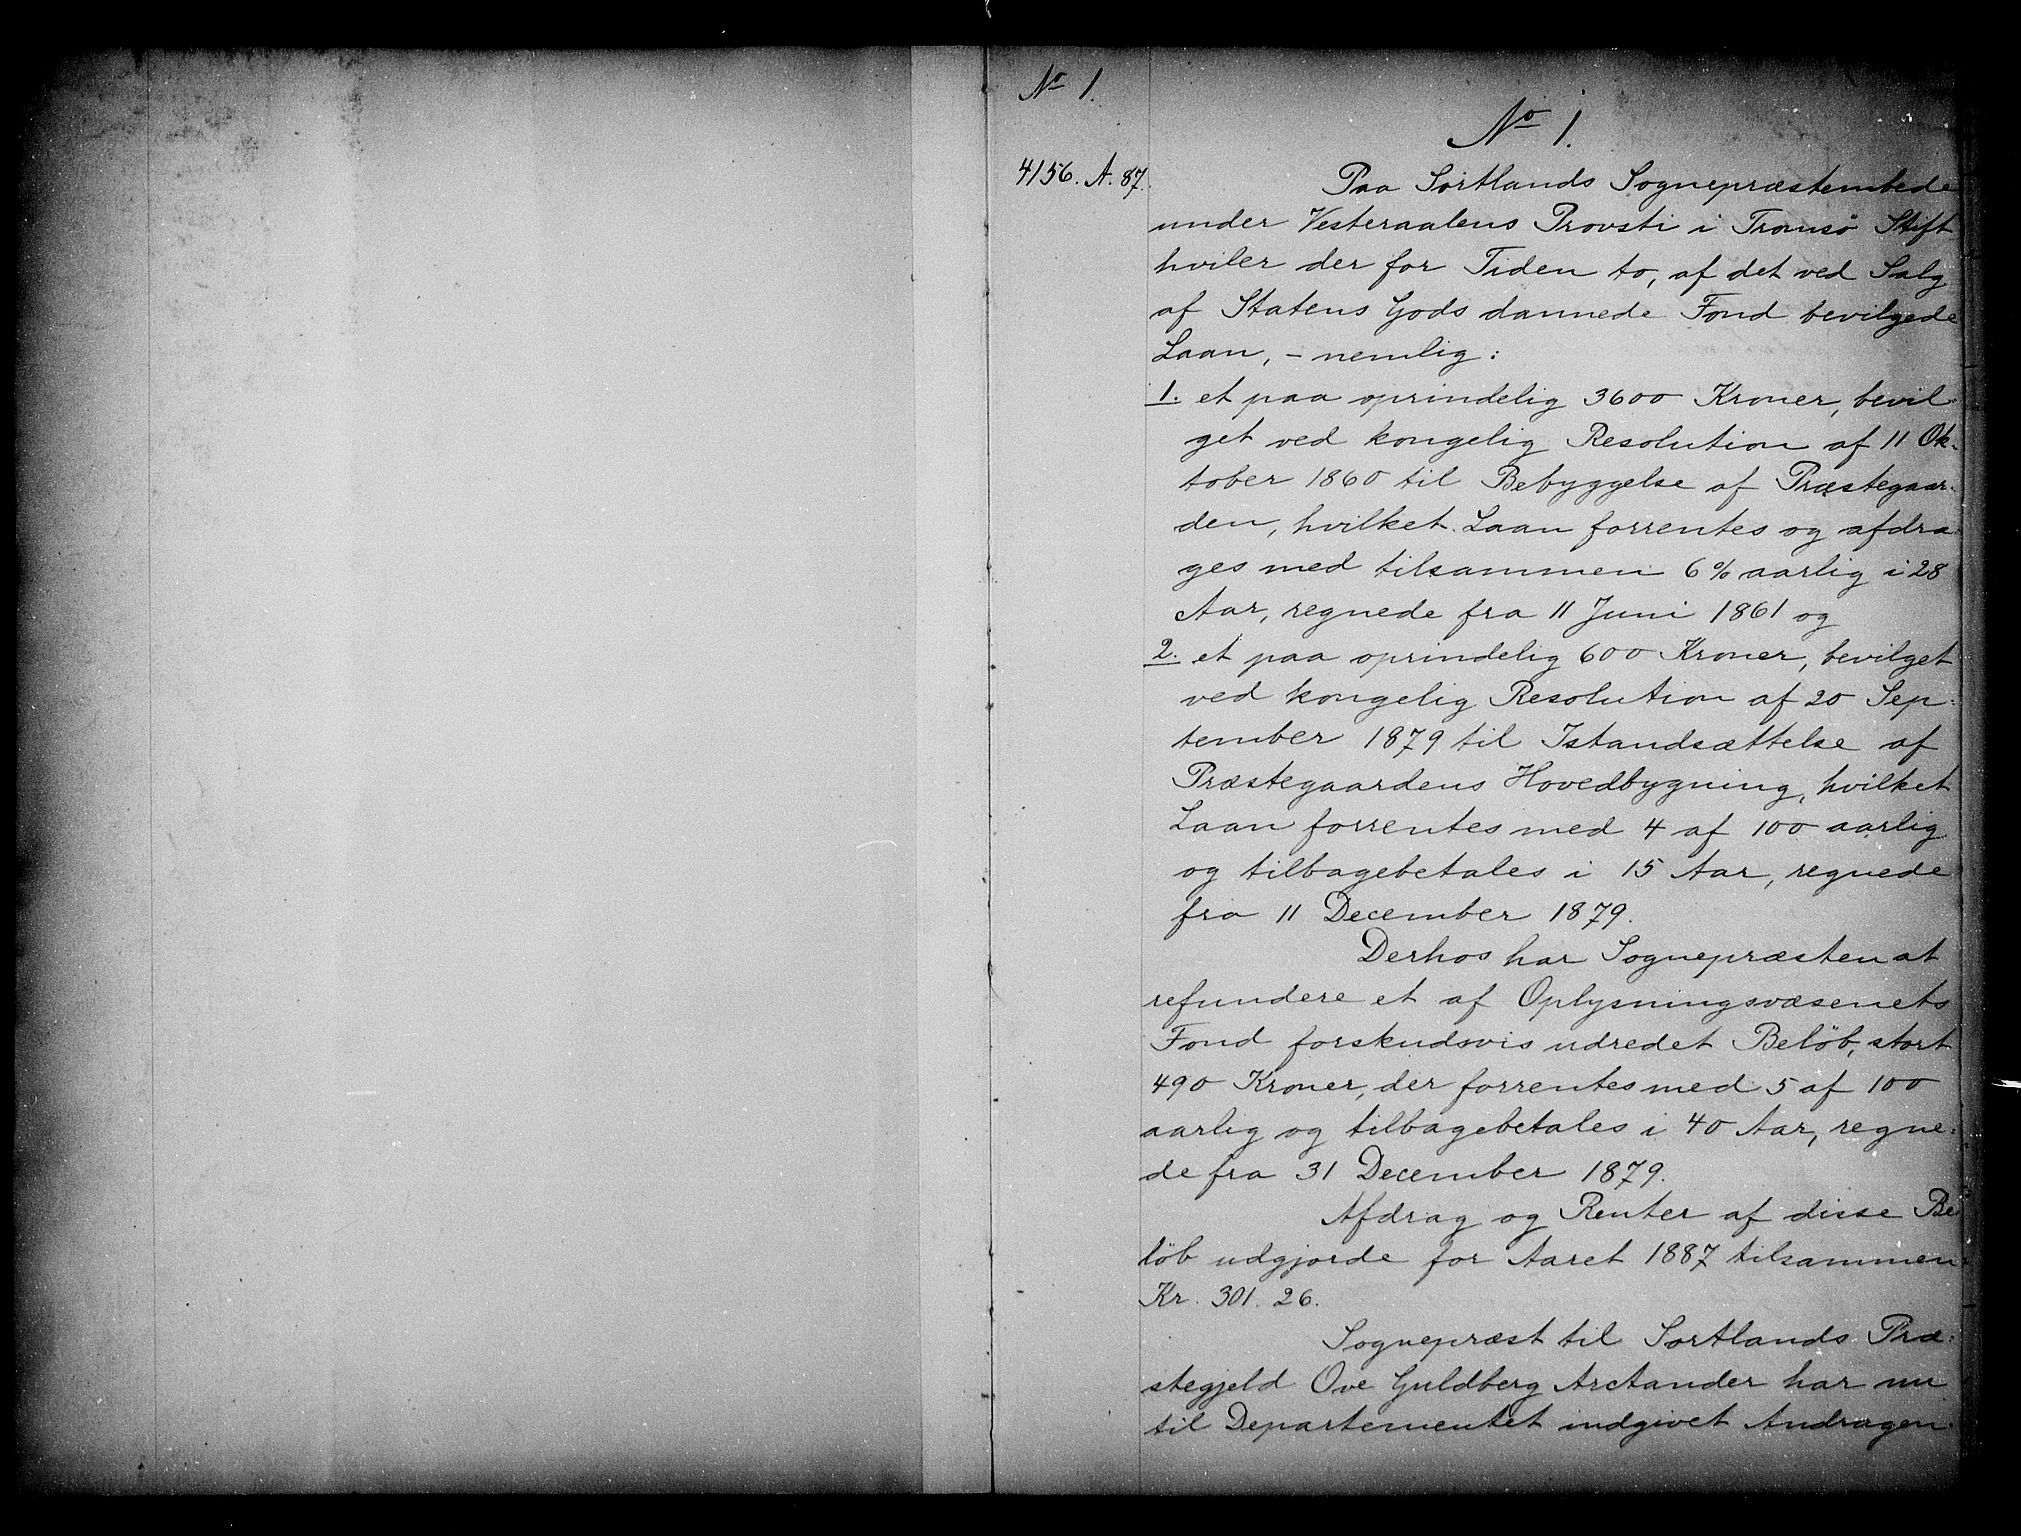 No 1.
No 1.
4156. A. 87.
Paa Sortlands Sognepræstembede
under Vesteraalens Provsti i Tromsö Stift
hviler der for Tiden to, af det ved Salg
af Statens Gods dannede Fond bevilgede
Laan, - nemlig:
1. et paa oprindelig 3600 Kroner, bevil-
get ved kongelig Resolution af 11 Ok-
tober 1860 til Bebyggelse af Præstegaar-
den, hvilket Laan forrentes og afdra-
ges med tilsammen 6% aarlig i 28
Aar, regnede fra 11 Juni 1861 og
2. et paa oprindelig 600 Kroner, bevilget
ved kongelig Resolution af 20 Sep-
tember 1879 til Istandsættelse af
Præstegaardens Hovedbygning, hvilket
Laan forrentes med 4 af 100 aarlig
og tilbagebetales i 15 Aar, regnede
fra 11 December 1879.
Derhos har Sognepræsten at
refundere et af Oplysningsvæsenets
Fond forskudsvis udredet Belöb, stort
490 Kroner, der forrentes med 5 af 100
aarlig og tilbagebetales i 40 Aar, regne-
de fra 31 December 1879.
Afdrag og Renter af disse Be-
löb udgjorde for Aaret 1887 tilsammen
Kr. 301. 26.
Sognepræst til Sortlands Præ-
stegjeld Ove Guldberg Arctander har nu
til Departementet indgivet Andragen-